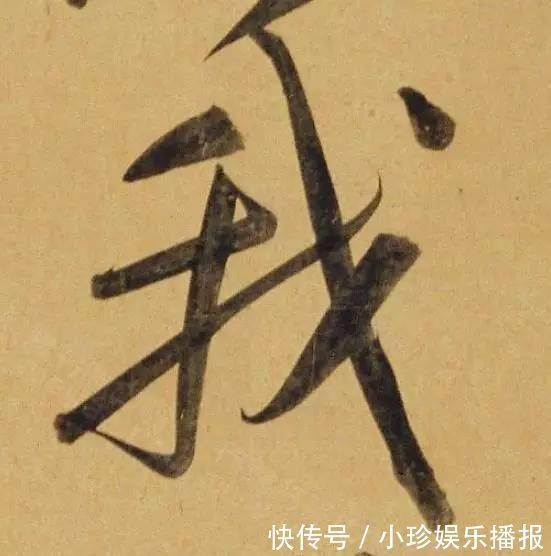 我
快传号/小珍娱乐播报